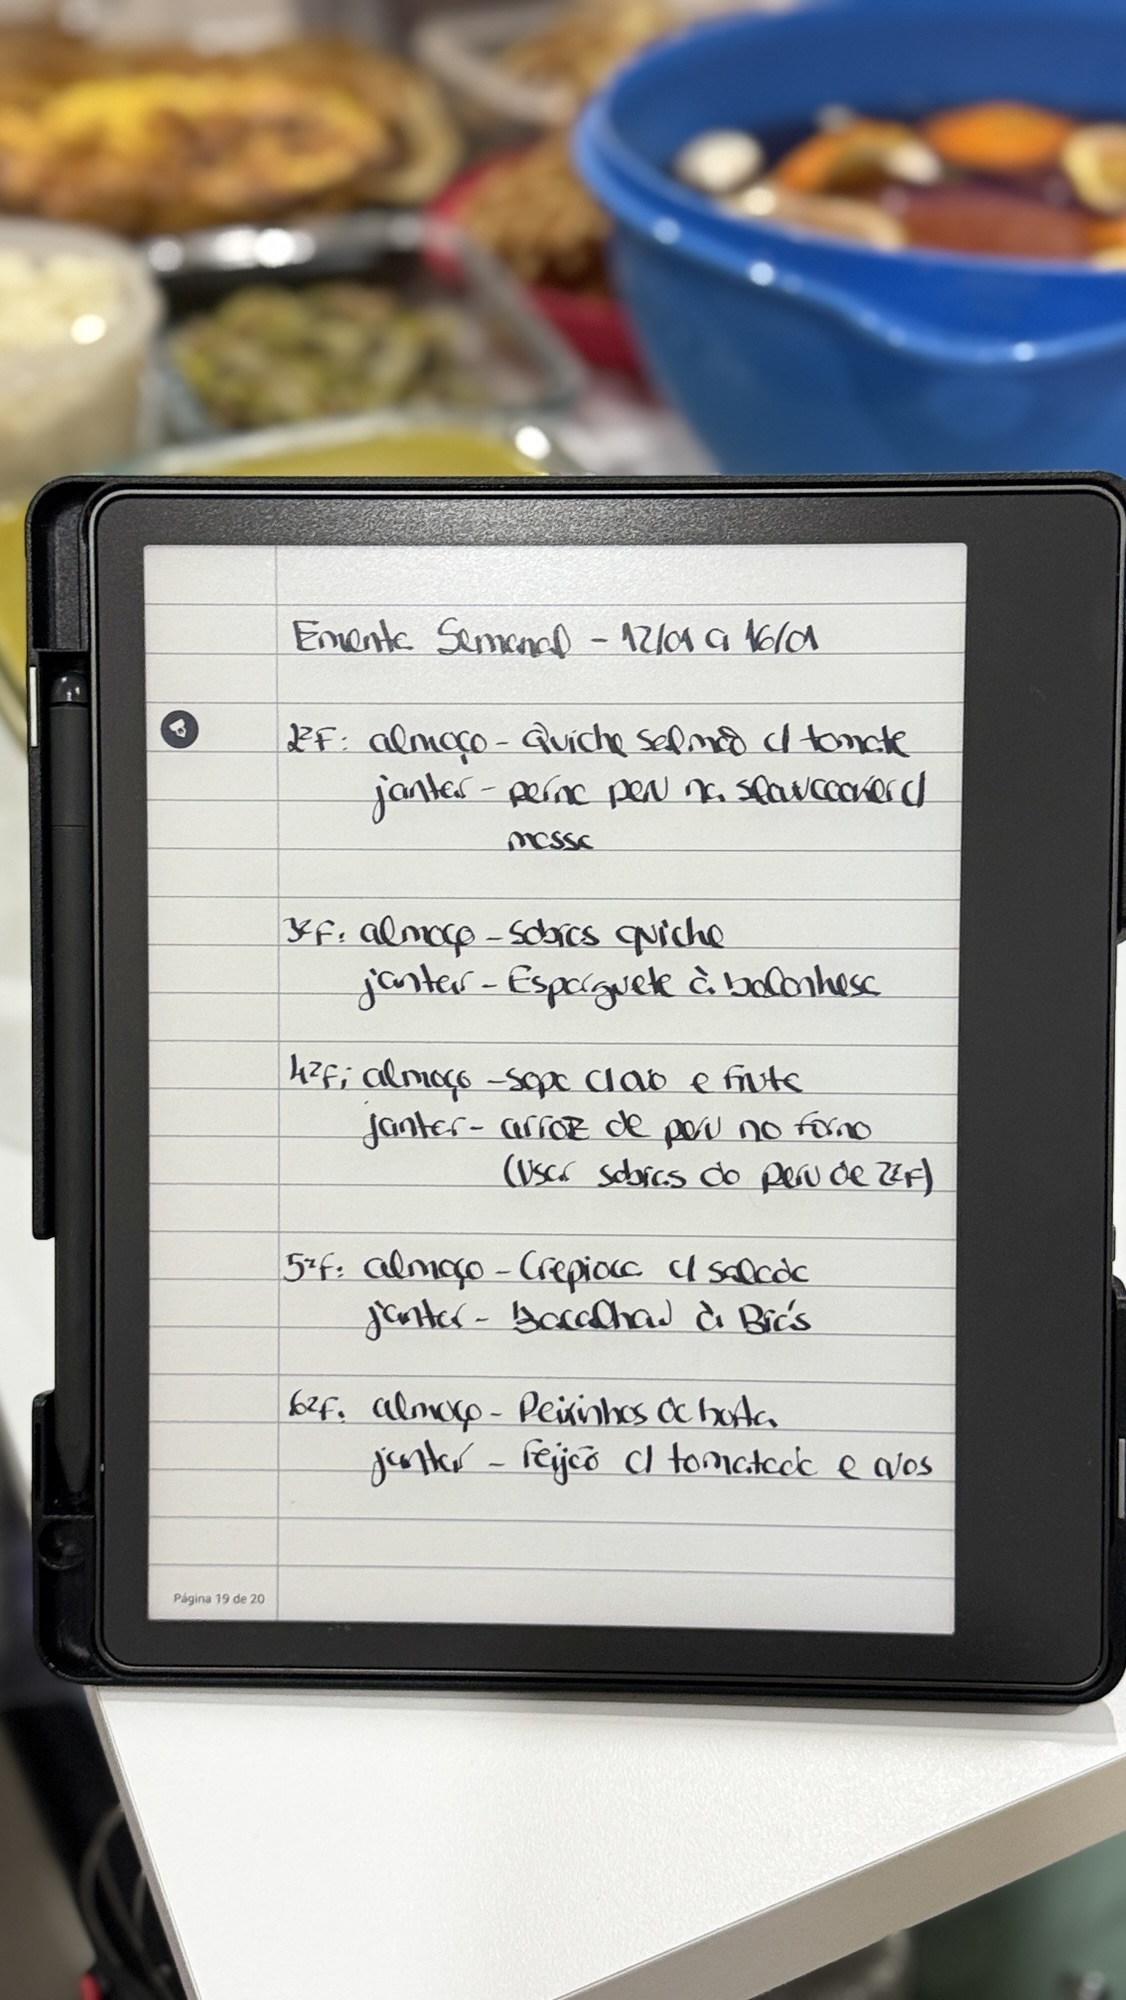 Ementa Semanal - 12/01 a 16/01
2ªF: almoço - Quiche salmão c/ tomate
jantar - perna peru na slowcooker c/
massa
3ªF: almoço - Sobras quiche
jantar - Esparguete à bolonhesa
4ªF: almoço - sopa grão e fruta
jantar - arroz de peru no forno
(usar sobras do peru de 2ªF)
5ªF: almoço - Crepioca c/ salada
jantar - bacalhau à Brás
6ªF: almoço - Peixinhos da horta
jantar - feijão c/ tomatada e ovos
Página 19 de 20